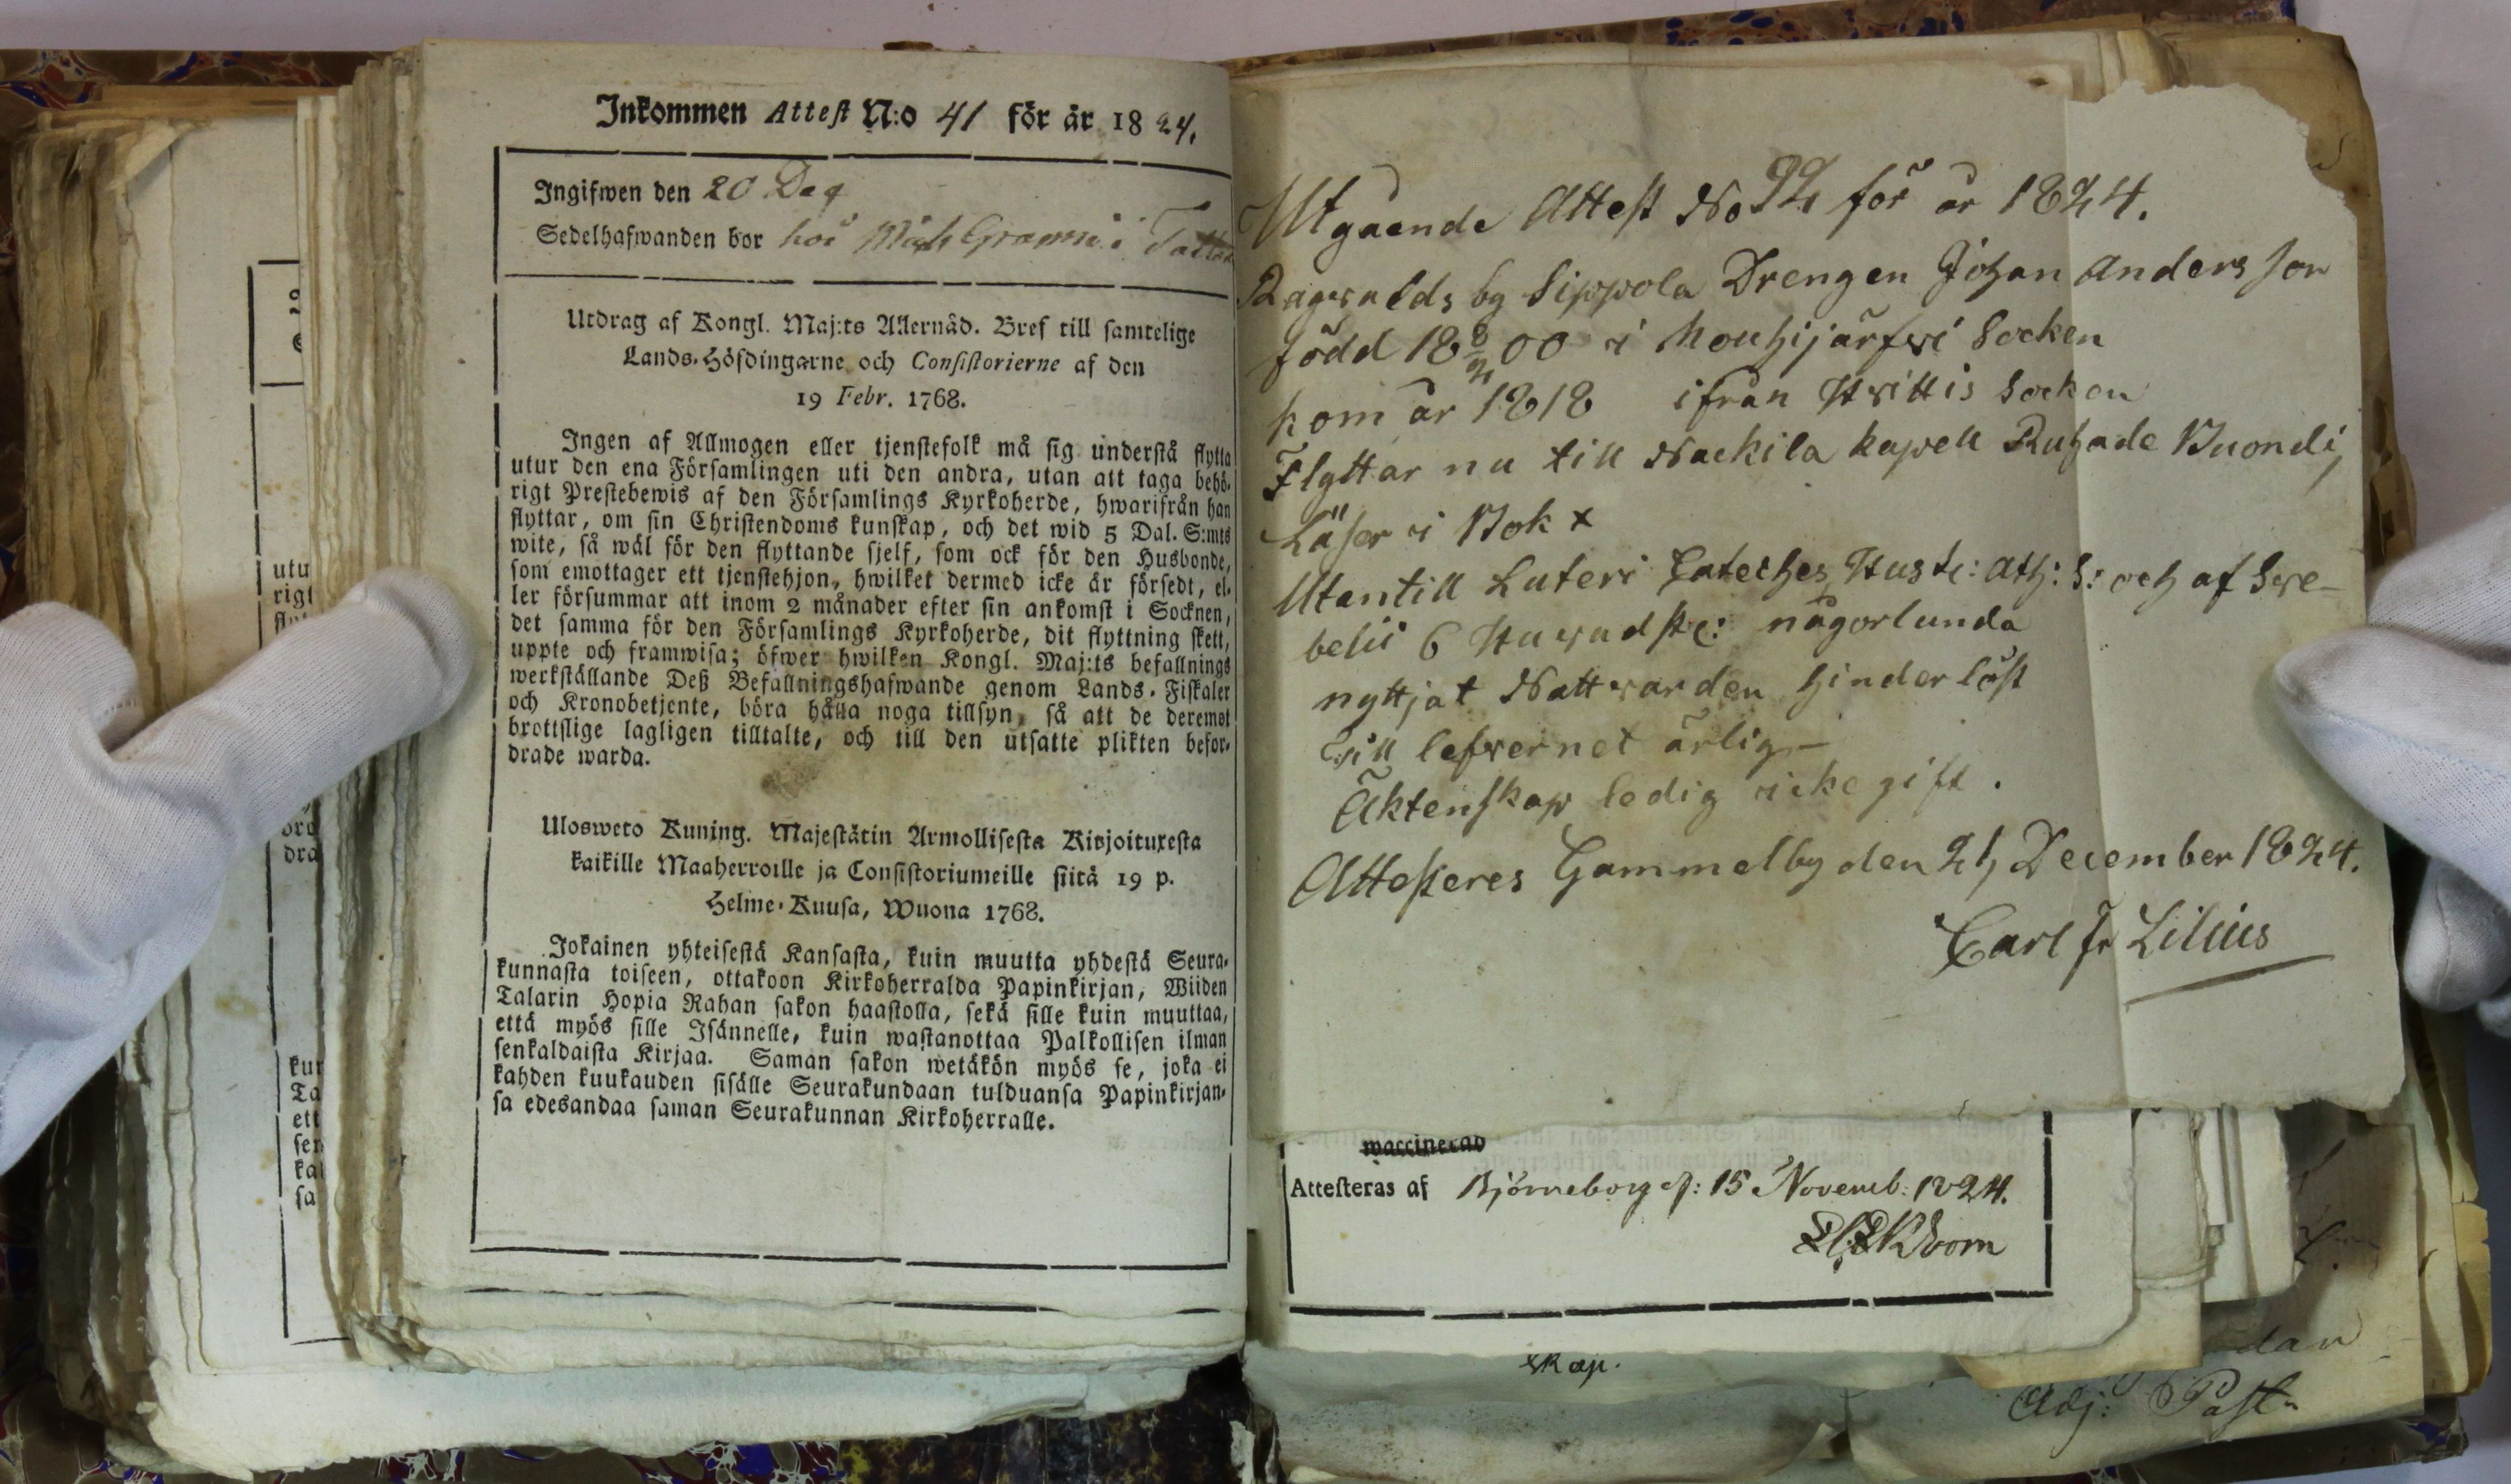 Inkommen Attest N:o 41 för år 1824.
Ingifwen den 20 Dec
Sedelhafwanden bor hos
Utdrag af Kongl. Maj:ts Allernåd. Bref till samtelige
Lands-Höfdingarne och Consistorierne af den
19 Febr. 1768.
Ingen af Allmogen eller tjenstefolk må sig understå flytta
utur den ena Församlingen uti den andra, utan att taga behö-
rigt Prestebewis af den Församlings Kyrkoherde, hwarifrån han
flyttar, om sin Christendoms kunskap, och det wid 5 Dal. S:mts
wite, så wäl för den flyttande sjelf, som ock för den Husbonde,
som emottager ett tjenstehjon, hwilket dermed icke är försedt, el-
ler försummar att inom 2 månader efter sin ankomst i Socknen,
det samma för den Församlings Kyrkoherde, dit flyttning skett,
uppte och framwisa; öfwer hwilken Kongl. Maj:ts befallnings
werkställande Deß Befallningshafwande genom Lands-Fiskaler
och Kronobetjente, böra hålla noga tillsyn, så att de deremot
brottslige lagligen tilltalte, och till den utsatte plikten befor-
drade warda.
Ulosweto Kuning. Majestätin Armollisesta Kirjoituxesta
kaikille Maaherroille ja Consistoriumeille siitä 19 p.
Helme-Kuusa, Wuona 1768.
Jokainen yhteisestä Kansasta, kuin muutta yhdestä Seura-
kunnasta toiseen, ottakoon Kirkoherralda Papinkirjan, Wiiden
Talarin Hopia Rahan sakon haastolla, sekä sille kuin muuttaa,
että myös sille Isännelle, kuin wastanottaa Palkollisen ilman
senkaldaista Kirjaa. Saman sakon wetäkön myös se, joka ei
kahden kuukauden sisälle Seurakundaan tulduansa Papinkirjan-
sa edesandaa saman Seurakunnan Kirkoherralle.
utu
rigt
dra
kun
Ta
ett
sen
kal
sa
Utgaende Attest No 92 för år 1824.
Ragwalds by Sippola Drengen Johan Anders son
född 18 8/2 00 i Mouhijärfwi Socken
kom år 1818 ifrån Hvittis Socken
Flyttar nu till Nackila kapell Ruhade Buondi,
Läser i Bok x
Utantill Luteri Cateches Hust: Ath: S: och af Swe-
belii 6 Huwudst: någorlunda
nyttjat Nattvarden hinderlöst
Till lefvernet ärlig–
Äktenskap ledig icke gift.
Attesteres Gammelby den 21 December 1824.
Carl Fr Lilius
waccinerad
Attesteras af Björneborg d: 15 Novemb: 1824.
skap.
Adj: Past: